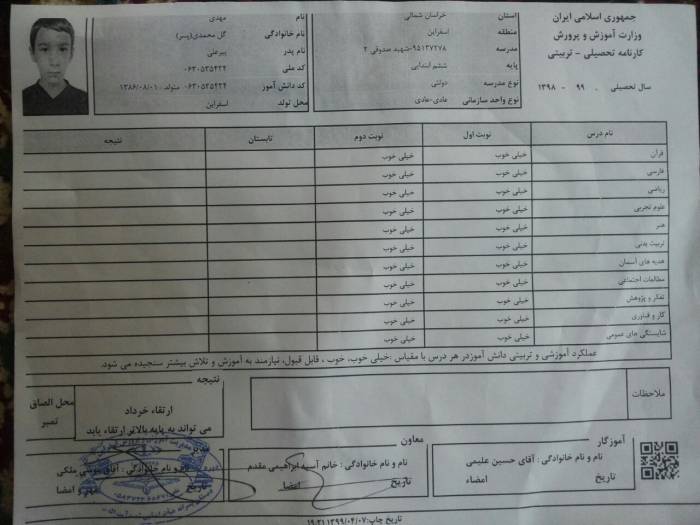 جمهوری اسلامی ایران
وزارت آموزش و پرورش
کارنامه تحصیلی - تربیتی
سال تحصیلی ۹۹ - ۱۳۹۸
استان خراسان شمالی
منطقه اسفراین
مدرسه ۹۵۱۳۷۲۷۸-شهید صدوقی ۲
پایه ششم ابتدایی
نوع مدرسه دولتی
نوع واحد سازمانی عادی-عادی
نام مهدی
نام خانوادگی گل محمدی(پسر)
نام پدر پیرعلی
کد ملی ۰۶۳۰۵۳۵۴۲۴
کد دانش آموز ۰۶۳۰۵۳۵۴۲۴ متولد : ۱۳۸۶/۰۸/۰۱
محل تولد اسفراین
نام درس نوبت اول نوبت دوم تابستان نتیجه
قرآن خیلی خوب خیلی خوب
فارسی خیلی خوب خیلی خوب
ریاضی خیلی خوب خیلی خوب
علوم تجربی خیلی خوب خیلی خوب
هنر خیلی خوب خیلی خوب
تربیت بدنی خیلی خوب خیلی خوب
هدیه های آسمان خیلی خوب خیلی خوب
مطالعات اجتماعی خیلی خوب خیلی خوب
تفکر و پژوهش خیلی خوب خیلی خوب
کار و فناوری خیلی خوب خیلی خوب
شایستگی های عمومی خیلی خوب خیلی خوب
عملکرد آموزشی و تربیتی دانش آموزدر هر درس با مقیاس :خیلی خوب، خوب ، قابل قبول، نیازمند به آموزش و تلاش بیشتر سنجیده می شود.
ملاحظات
نتیجه
ارتقاء خرداد
می تواند به پایه بالاتر ارتقاء یابد
محل الصاق
تمبر
آموزگار
نام و نام خانوادگی : آقای حسین علیمی
تاریخ امضاء
معاون
نام و نام خانوادگی : خانم آسیه ابراهیمی مقدم
تاریخ امضا
مدیر
نام و نام خانوادگی : آقای موسی ملکی
تاریخ مهر و امضا
تاریخ چاپ:۱۳۹۹/۰۴/۰۷ ۱۹:۲۱